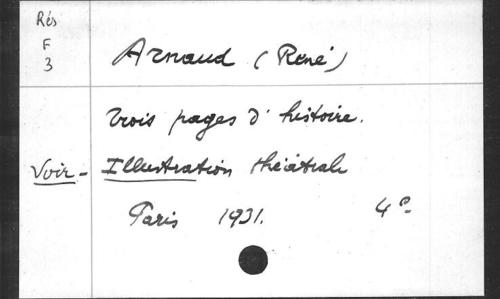 Rés
F
3
Arnaud (René)
Trois pages d'histoire.
Voir - Illustration théâtrale
Paris 1931. 4º